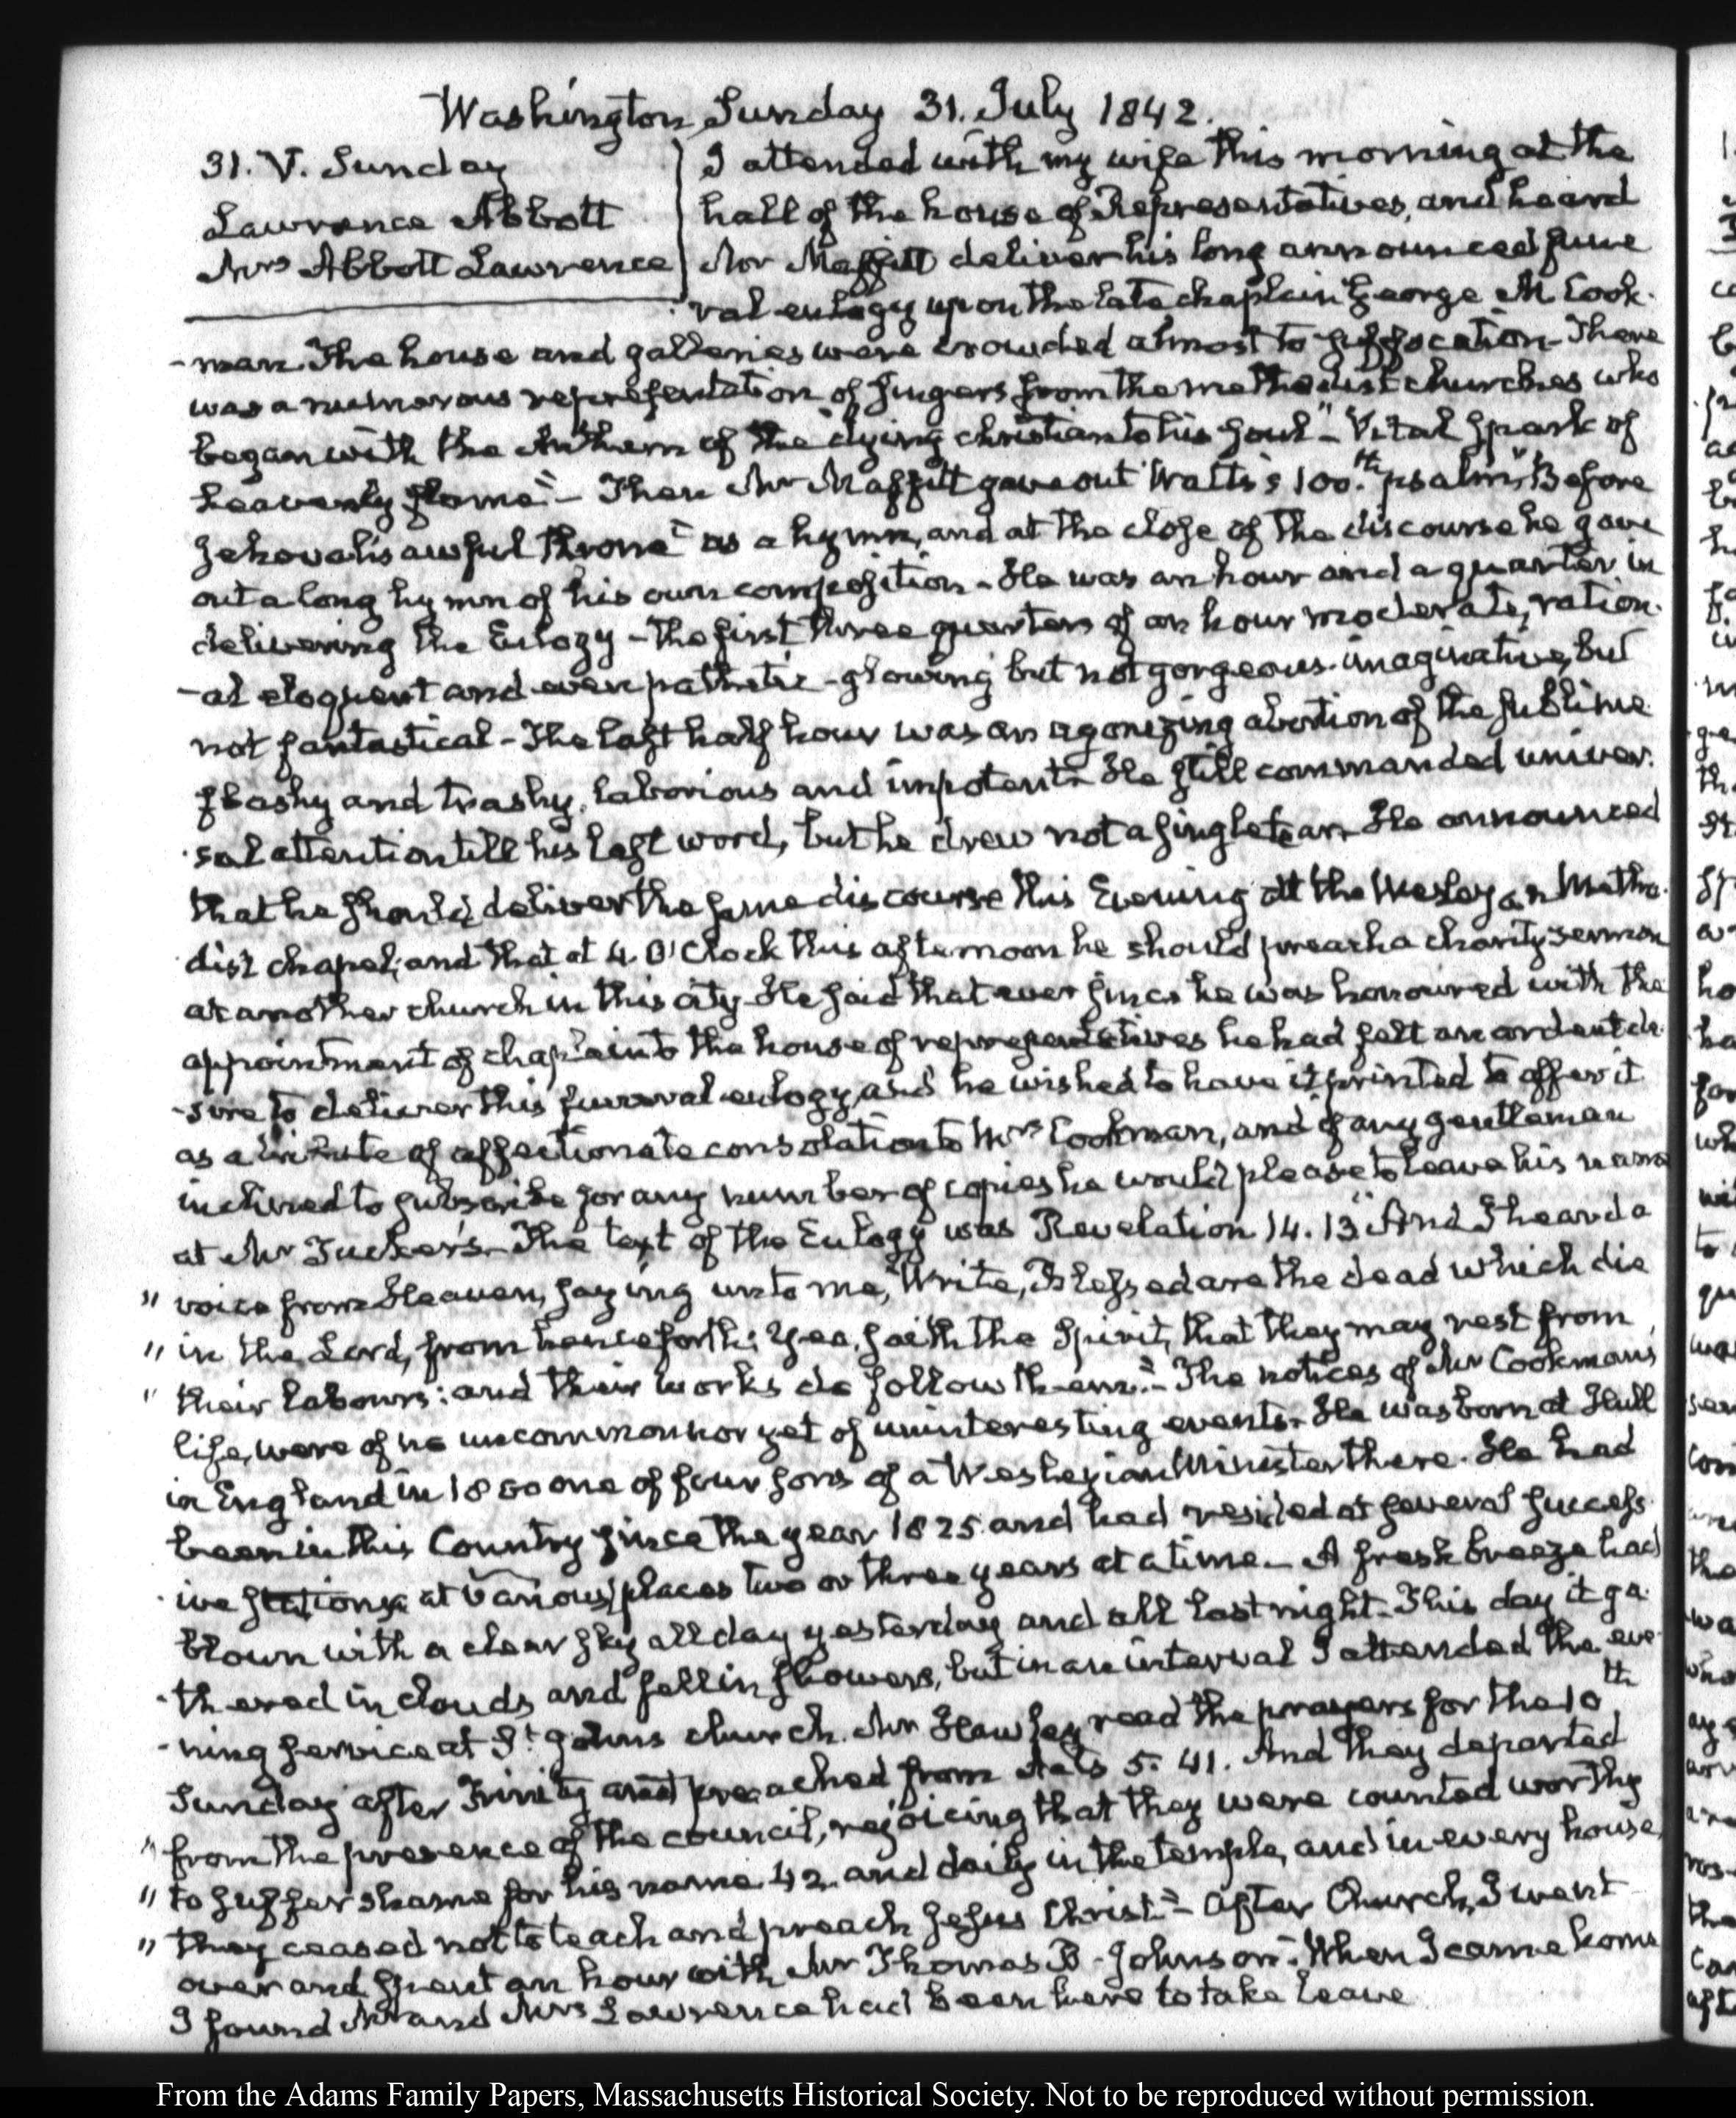 Washington Sunday 31. July 1842.
31. V. Sunday
Lawrence Abbott
Mrs Abbott Lawrence
I attended with my wife this morning at the
hall of the house of Representatives, and heard
Mr Maffitt deliver his long announced fune
ral eulogy upon the late chaplain George M Cook-
-man. The house and galleries were crowded almost to suffocation. There
was a numerous representation of singers from the methodist churches who
began with the Anthem of "the dying christian to his soul" - "Vital Spark of
heavenly flame" - Then Mr Maffitt gave out Watts's 100.th psalm, "Before
Jehovah's awful throne" as a hymn, and at the close of the discourse he gave
out a long hymn of his own composition - He was an hour and a quarter in
delivering the Eulogy - the first three quarters of an hour moderate, ration-
-al eloquent and even pathetic - glowing but not gorgeous - imaginative, but
not fantastical - The last half hour was an agonizing abortion of the sublime
flashy and trashy, laborious and impotent - He still commanded univer-
-sal attention till his last word, but he drew not a single tear - He announced
that he should deliver the same discourse this Evening at the Wesleyan Metho-
dist chapel; and that at 4 O'Clock this afternoon he should preach a charity sermon
at another church in this city - He said that ever since he was honoured with the
appointment of chaplain to the house of representatives he had felt an ardent de-
-sire to deliver this funeral eulogy, and he wished to have it printed to offer it
as a tribute of affectionate consolation to Mrs Cookman, and if any gentleman
inclined to subscribe for any number of copies he would please to leave his name
at Mr Tucker's - The text of the Eulogy was Revelation 14.13 "And I heard a
" voice from Heaven, saying unto me, Write, Blessed are the dead which die
" in the Lord, from henceforth: Yea, saith the Spirit, that they may rest from
" their labours: and their works do follow them." - The notices of Mr Cookman's
life, were of no uncommon nor yet of uninteresting events - He was born at Hull
in England in 1800 one of four sons of a Wesleyian Minister there. He had
been in this Country since the year 1825 and had resided at several success-
-ive stations at various places two or three years at a time - A fresh breeze had
blown with a clear sky all day yesterday and all last night - This day it ga-
-thered in clouds and fell in showers, but in an interval I attended the eve-
-ning service at St Johns church. Mr Hawley read the prayers for the 10th
Sunday after Trinity and preached from Acts 5. 41. And they departed
" from the presence of the council, rejoicing that they were counted worthy
" to suffer shame for his name. 42. and daily in the temple, and in every house,
" they ceased not to teach and preach Jesus Christ" - After Church, I went
over and spent an hour with Mr Thomas B. Johnson. When I came home
I found Mr and Mrs Lawrence had been here to take leave
From the Adams Family Papers, Massachusetts Historical Society. Not to be reproduced without permission.